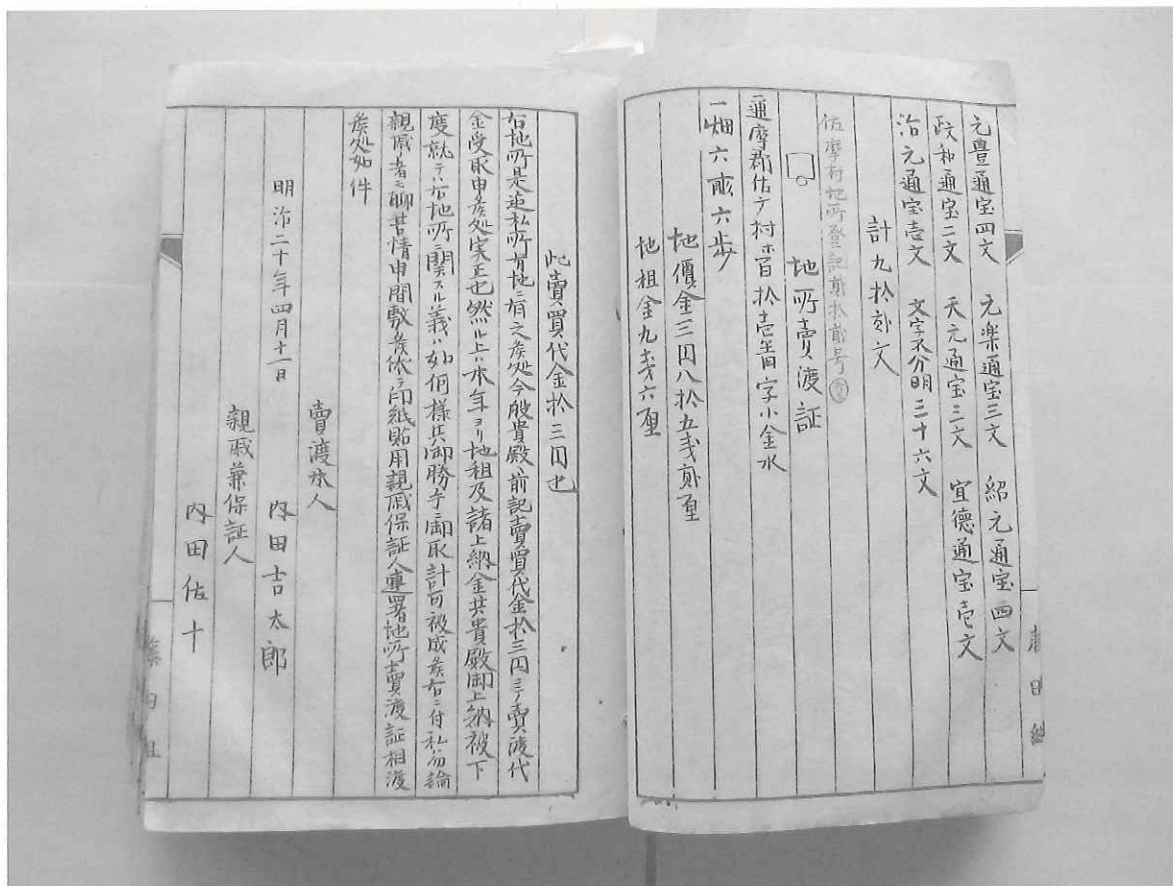 元豊通宝四文　元楽通宝三文　紹元通宝四文
政和通宝二文　天元通宝三文　宜德通宝壱文
治元通宝壱文　文字不分明三十六文
計九拾弐文
佐摩村地所登記第拾弐号
地所賣渡証
邇摩郡佐摩村ホ百拾壱番字小金水
一畑六畝六歩
地價金三円八拾五銭弐厘
地租金九銭六厘
此賣買代金拾三円也
右地所是迄私所有地ニ有之候処今般貴殿ヘ前記賣買代金拾三円ニテ賣渡代
金受取申候処実正也然ル上ハ本年ヨリ地租及諸上納金共貴殿御上納被下
度就テハ右地所ニ関スル義ハ如何様共御勝手ニ御取計可被成候右ニ付私ハ勿論
親戚ノ者ニ聊苦情申間敷候依テ印紙貼用親戚保証人連署地所賣渡証相渡
候処如件
明治二十年四月十一日
賣渡本人
内田吉太郎
親戚兼保証人
内田佐十